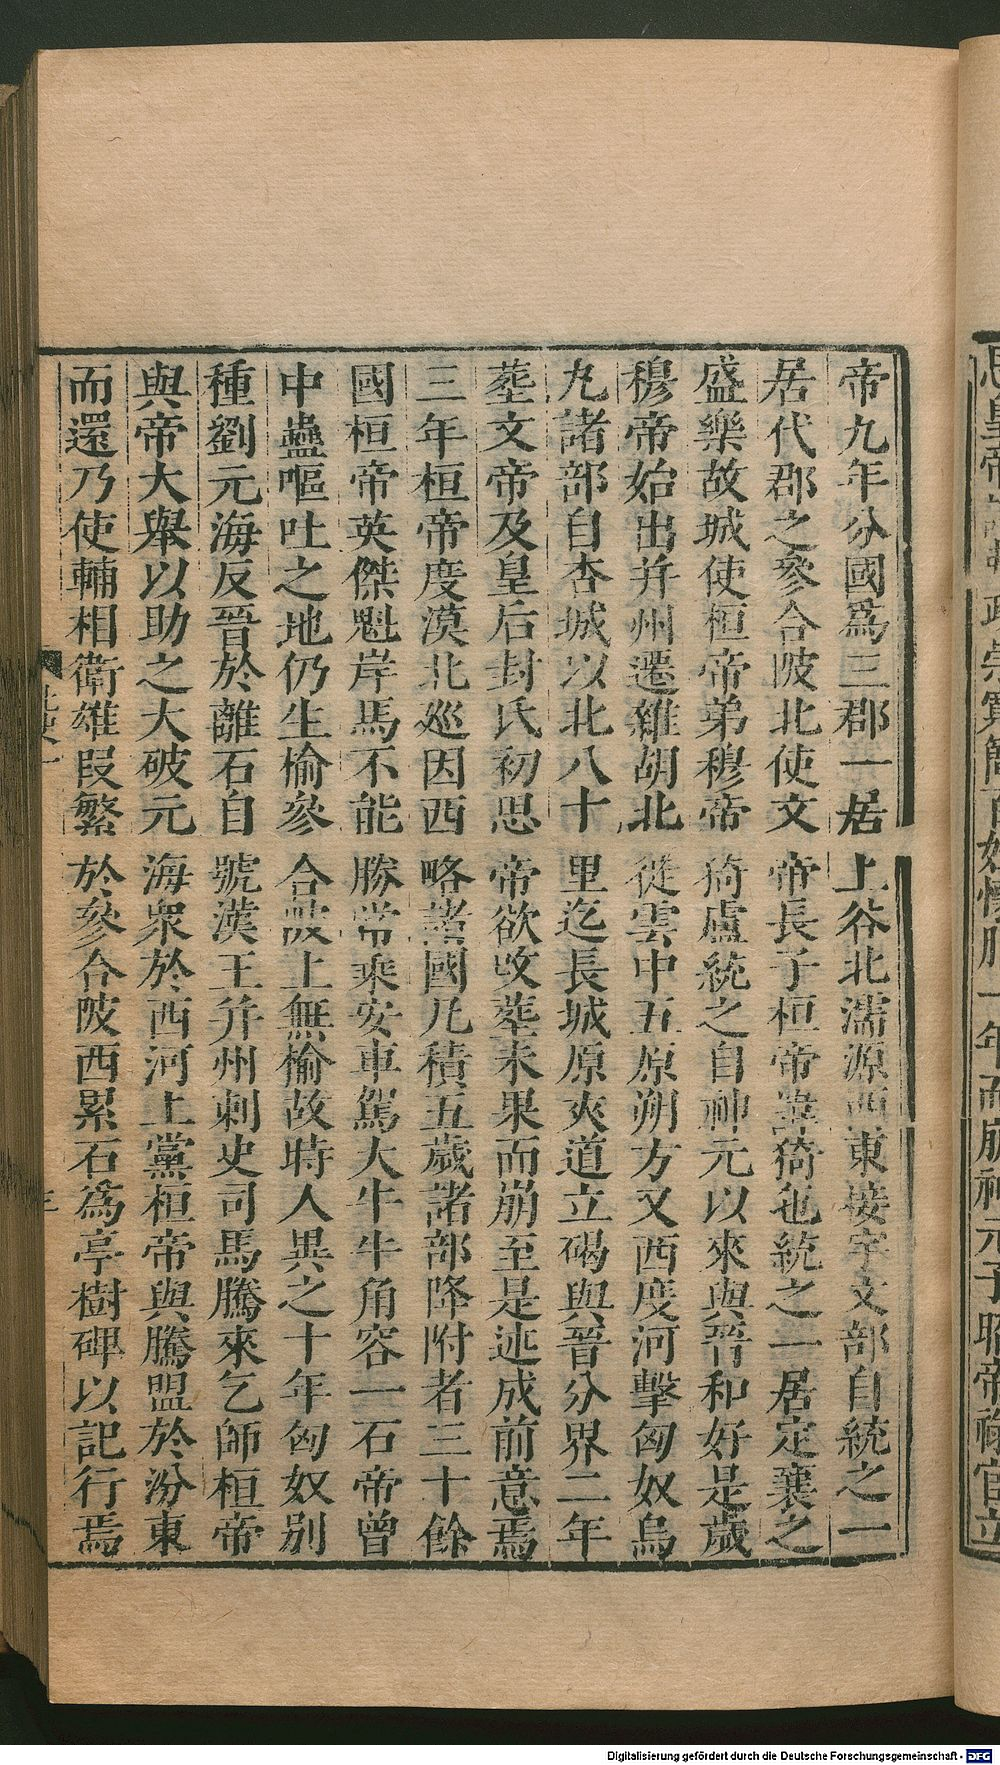 帝九年分國爲三郡一居上谷北濡源西東接宇文部自統之一
居代郡之參合陂北使文帝長子桓帝諱猗㐌統之一居定襄之
盛樂故城使桓帝弟穆帝猗盧統之自神元以來與晉和好是歲
穆帝始出并州遷雜胡北徙雲中五原朔方又西度河擊匈奴烏
丸諸部自杏城以北八十里迄長城原夾道立碣與晉分界二年
葬文帝及皇后封氏初思帝欲改葬未果而崩至是述成前意焉
三年桓帝度漠北巡因西略諸國凡積五歲諸部降附者三十餘
國桓帝英傑魁岸馬不能勝常乘安車駕大牛牛角容一石帝曾
中蠱嘔吐之地仍生榆參合陂土無榆故時人異之十年匈奴別
種劉元海反晉於離石自號漢王并州刺史司馬騰來乞師桓帝
與帝大舉以助之大破元海衆於西河上黨桓帝與騰盟於汾東
而還乃使輔相衛雄段繁於參合陂西累石爲亭樹碑以記行焉
Digitalisierung gefördert durch die Deutsche Forschungsgemeinschaft - DFG